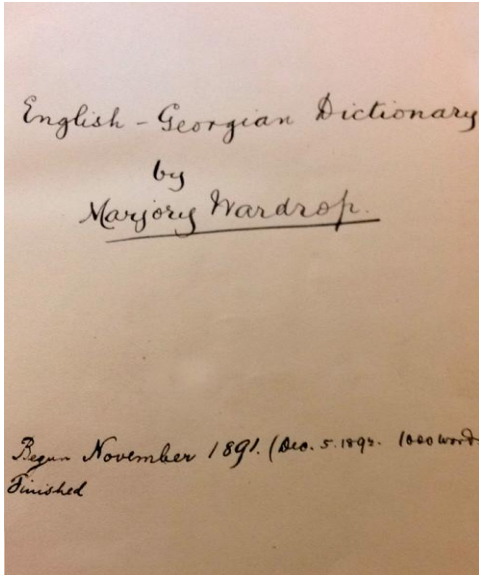 English - Georgian Dictionary
by
Marjory Wardrop.
Begun November 1891. (Dec. 5. 1892. 1000 word
Finished